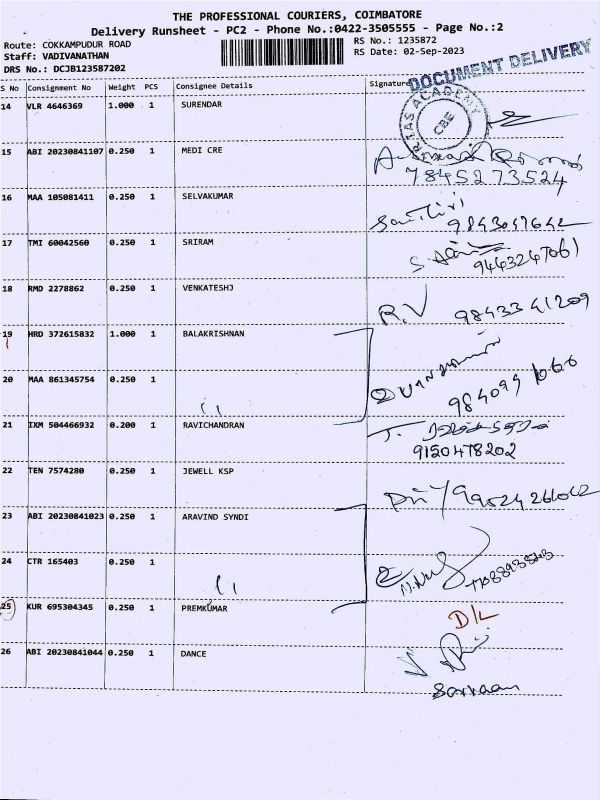 THE PROFESSIONAL COURIERS, COIMBATORE
Delivery Runsheet - PC2 - Phone No.:0422-3505555 - Page No.:2
Route: COKKAMPUDUR ROAD
RS No.: 1235872
Staff: VADIVANATHAN
RS Date: 02-Sep-2023
DRS No.: DCJB123587202
DOCUMENT DELIVERY
S No Consignment No Weight PCS Consignee Details Signature
14 VLR 4646369 1.000 1 SURENDAR
IAS ACADEMY
CBE
15 ABI 20230841107 0.250 1 MEDI CRE
7845273524
16 MAA 105081411 0.250 1 SELVAKUMAR
9843047642
17 TMI 60042560 0.250 1 SRIRAM
9443247061
18 RMD 2278862 0.250 1 VENKATESHJ
R.V 9843341209
19 HRD 372615832 1.000 1 BALAKRISHNAN
20 MAA 861345754 0.250 1
21 IXM 504466932 0.200 1 RAVICHANDRAN
9150478202
22 TEN 7574280 0.250 1 JEWELL KSP
23 ABI 20230841023 0.250 1 ARAVIND SYNDI
24 CTR 165403 0.250 1
25 KUR 695304345 0.250 1 PREMKUMAR
D/L
26 ABI 20230841044 0.250 1 DANCE